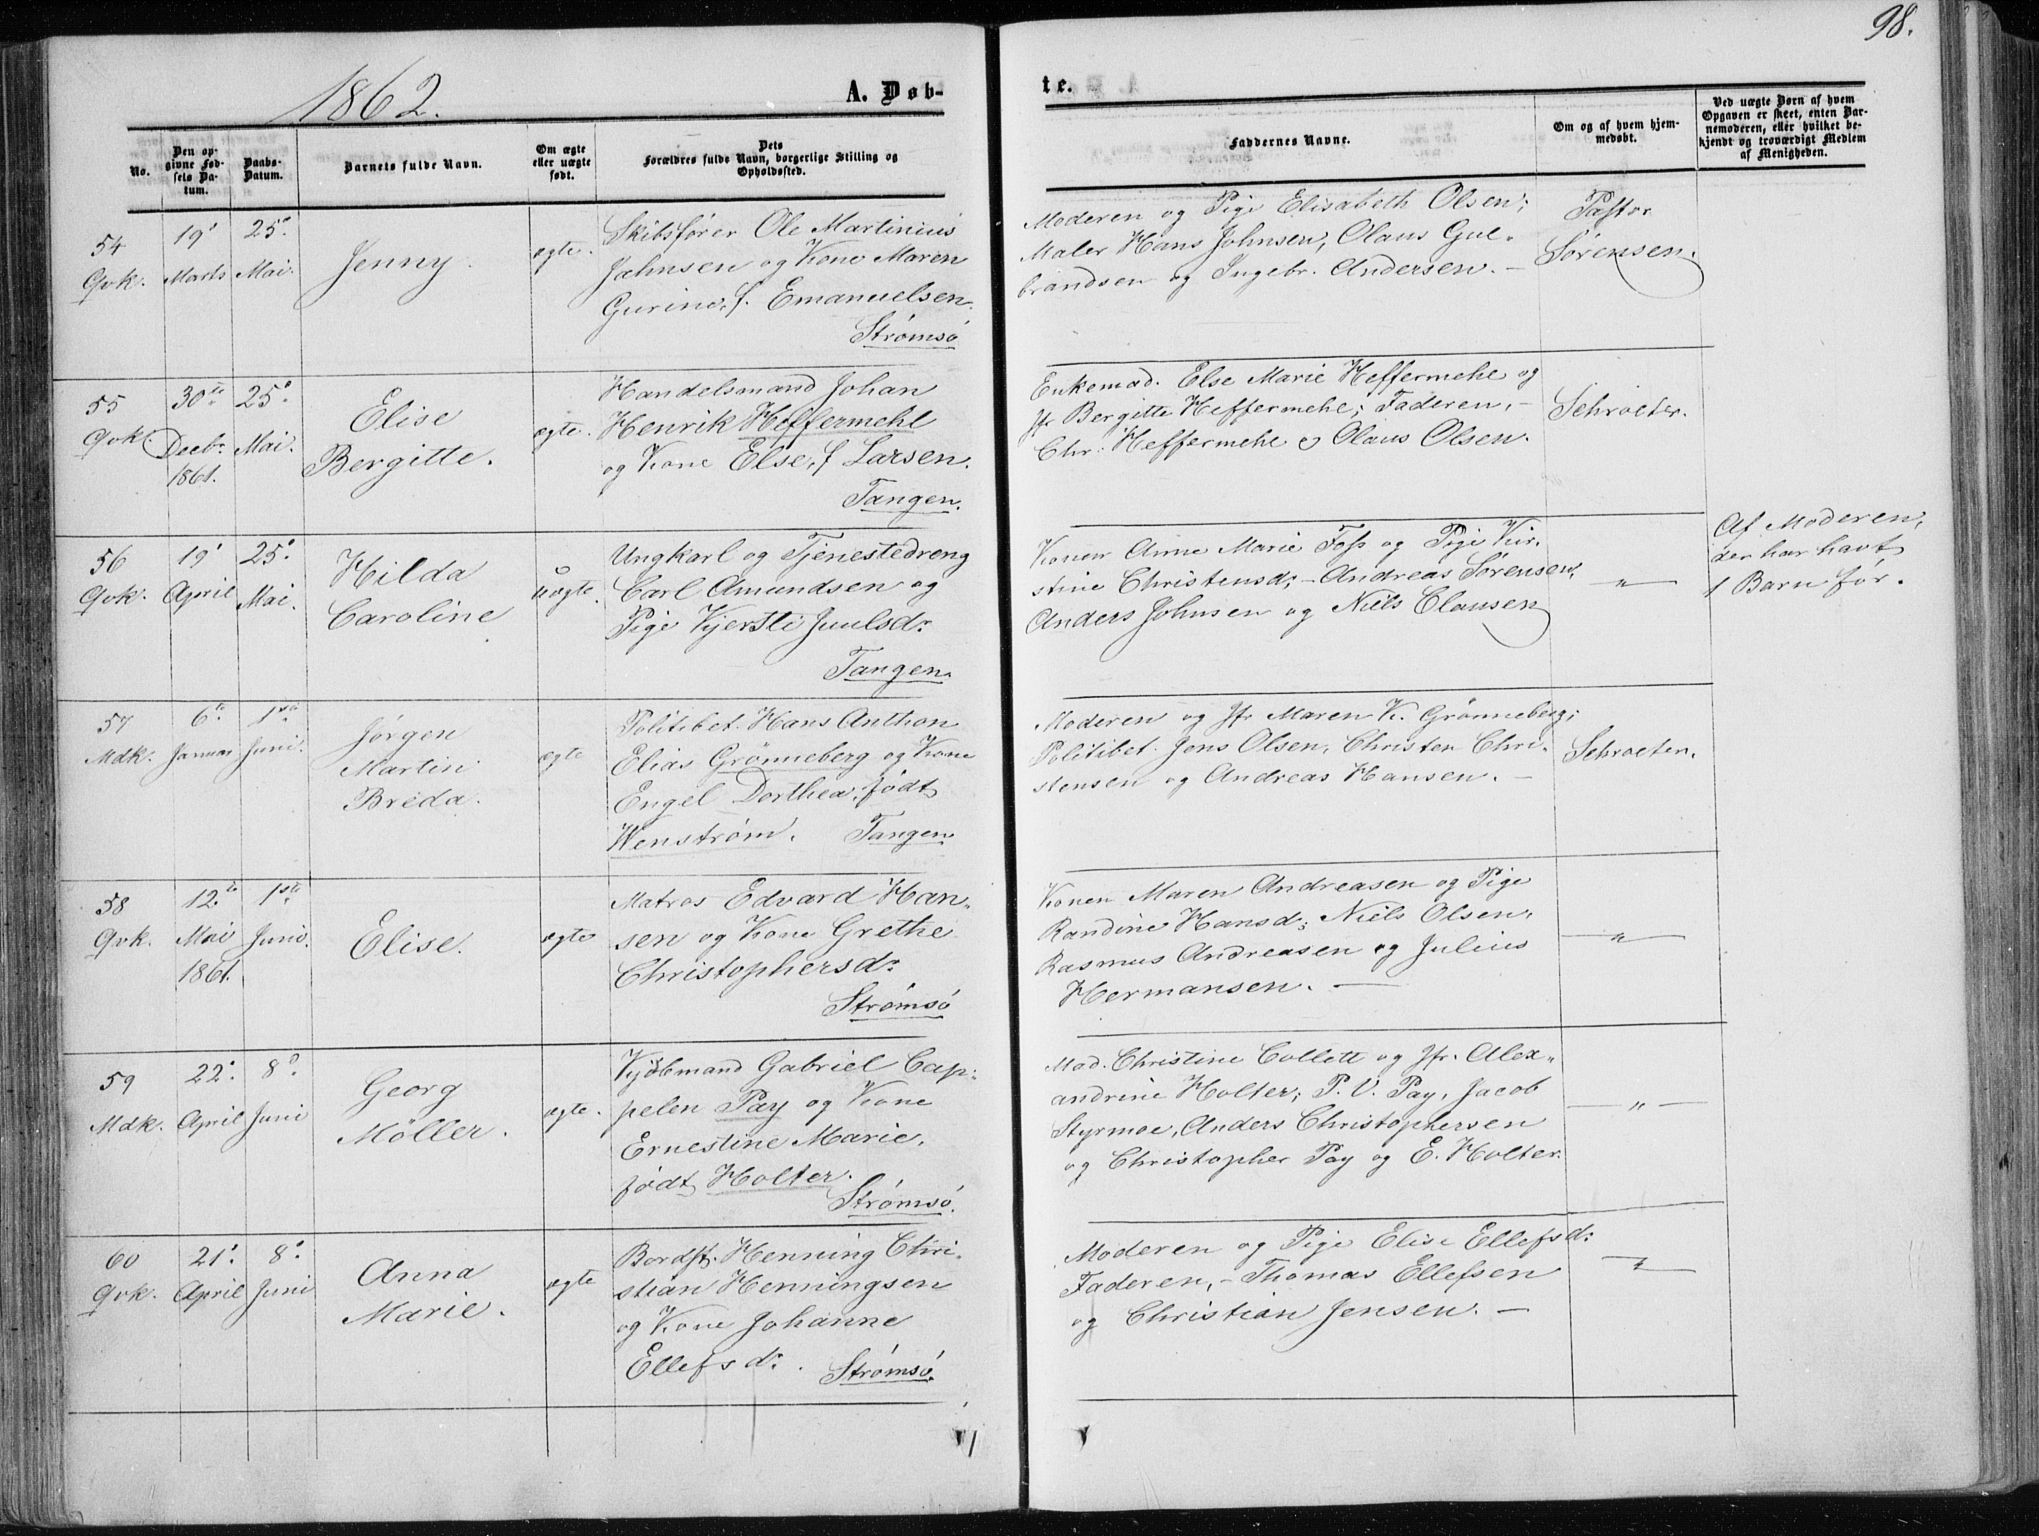 98.
1862.
A. Døb-
te.
No.
Den op-
givne Fød-
sels Da-
tum.
Daabs-
Datum.
Barnets fulde Navn.
Om ægte
eller uægte
født.
Dets
Forældres fulde Navn, borgerlige Stilling og
Opholdssted.
Faddernes Navne.
Om og af hvem hjem-
medøbt.
Ved uægte Børn af hvem
Opgaven er skeet, enten Bar-
nemoderen, eller hvilket be-
kjendt og troværdigt Medlem
af Menigheden.
54
Qvk.
19'
Marts
25.
Mai.
Jenny.
ægte.
Skibsfører Ole Martinius
Johnsen og Kone Maren
Gurine, f. Emanuelsen.
Strømsø
Moderen og Pige Elisabeth Olsen;
Maler Hans Johnsen, Olaus Gul-
brandsen og Ingebr. Andersen. —
Pastor
Sørensen.
55
Qvk.
30te
Decbr.
1861.
25.
Mai.
Elise
Bergitte.
ægte.
Handelsmand Johan
Henrik Heffermehl
og Kone Else, f Larsen.
Tangen.
Enkemad. Else Marie Heffermehl og
Jfr Bergitte Heffermehl; Faderen, —
Chr. Heffermehl & Olaus Olsen.
Schroeter.
56
Qvk.
19'
April
25.
Mai.
Hilda
Caroline
uægte.
Ungkarl og Tjenestedreng
Carl Amundsen og
Pige Kjersti Juulsdr.
Tangen.
Konen Anne Marie Foss og Pige Kir-
stine Christensd; — Andreas Sørensen,
Anders Johnsen og Niels Clausen
— " —
Af Moderen,
der har havt
1 Barn før.
57
Mdk.
6te
Januar
1ste
Juni.
Jørgen
Martin
Breda.
ægte
Politibet. Hans Anthon
Elias Grönneberg og Kone
Engel Dorthea, født
Wenstrøm. Tangen.
Moderen og Jfr Maren K. Grönneberg;
Politibet. Jens Olsen, Christen Chri-
stensen og Andreas Hansen. —
Schroeter.
58
Qvk.
12te
Mai
1861.
1ste
Juni.
Elise.
ægte
Matros Edvard Han-
sen og Kone Grethe
Christophersdr.
Strømsø
Konen Maren Andreasen og Pige
Randine Hansd; Niels Olsen,
Rasmus Andreasen og Julius
Hermansen. —
— " —
59
Mdk.
22.
April
8.
Juni
Georg
Möller.
ægte.
Kjöbmand Gabriel Cap-
pelen Pay og Kone
Ernestine Marie,
født Holter.
Strømsø.
Mad. Christine Collett og Jfr. Alex-
andrine Holter; P. V. Pay, Jacob
Styrmoe, Anders Christophersen
og Christopher Pay og E. Holter.
— " —
60
Qvk.
21.
April
8.
Juni
Anna
Marie.
ægte
Bordst. Henning Chri-
stian Henningsen
og Kone Johanne
Ellefsdr. Strømsø.
Moderen og Pige Elise Ellefsd:
Faderen, — Thomas Ellefsen
og Christian Jensen. —
— " —